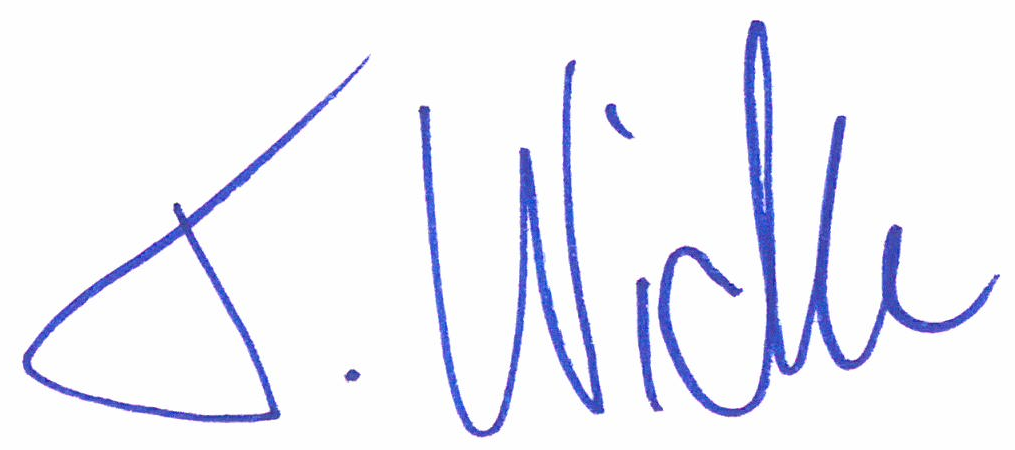 J. Wicke